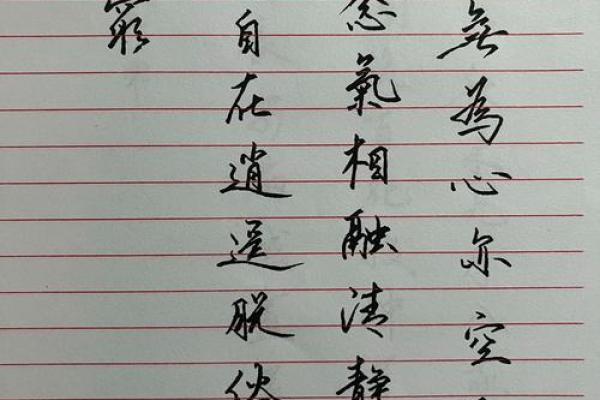 無為心亦空
念氣相融清靜
自在逍遥脱
窮